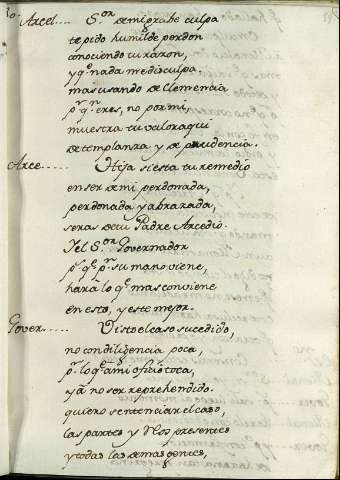 Arcel.... S.or de mi grabe culpa
te pido humilde perdon
conociendo tu razon,
y q.e nada me disculpa.
mas usando de Clemencia
p.r q.n eres, no por mi,
muestra tu valor aqui
de templanza y de prudencia.
Arce..... Hija si esta tu remedio
en ser de mi perdonada,
perdonada y abrazada,
seras de tu Padre Arcedio.
Y el S.or Governador
p.r q.e p.r su mano viene,
hará lo q.e mas conviene
en esto, y este mejor.
Gover..... Visto el caso sucedido,
no con diligencia poca,
p.r lo q.e a mi oficio toca,
y á no ser reprehendido.
quiero sentenciar el caso,
las partes y los presentes
y todas las demas gentes,